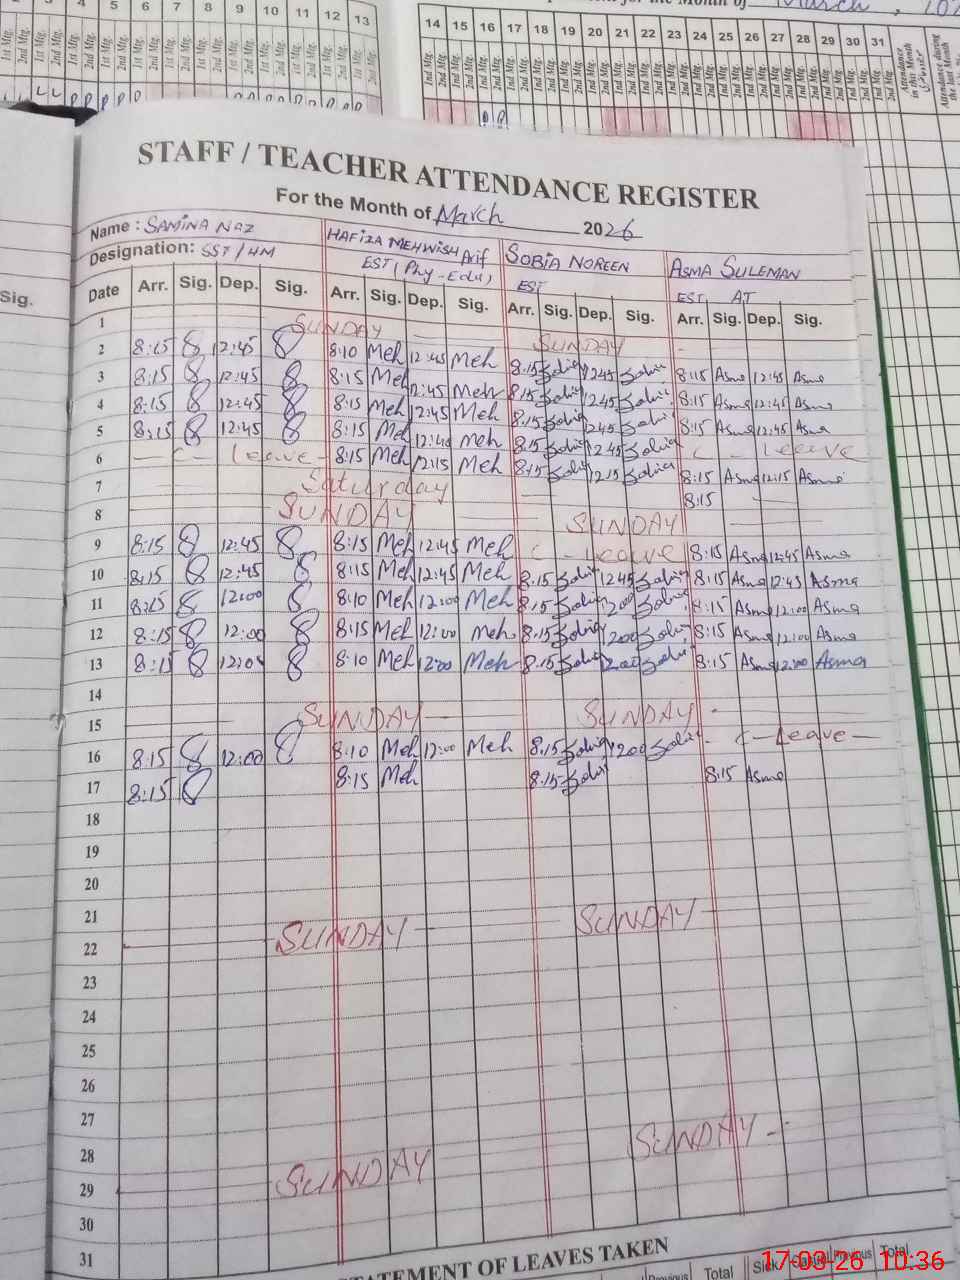 14 15 16 17 18 19 20 21 22 23 24 25 26 27 28 29 30 31
5 6 7 8 9 10 11 12 13
for the Month of March
STAFF / TEACHER ATTENDANCE REGISTER
For the Month of March 2026
Name : SAMINA NAZ HAFIZA MEHWISH Arif SOBIA NOREEN ASMA SULEMAN
Designation: SST / HM EST (Phy-Edu) EST EST AT
Sig.
Date Arr. Sig. Dep. Sig. Arr. Sig. Dep. Sig. Arr. Sig. Dep. Sig. Arr. Sig. Dep. Sig.
1 SUNDAY SUNDAY
2 8:15 8 12:45 8 8:10 Meh 12:45 Meh 8:15 Sobia 1245 Sobia 8:15 Asma 12:45 Asma
3 8:15 8 12:45 8 8:15 Meh 12:45 Meh 8:15 Sobia 1245 Sobia 8:15 Asma 12:45 Asma
4 8:15 8 12:45 8 8:15 Meh 12:45 Meh 8:15 Sobia 1245 Sobia 8:15 Asma 12:45 Asma
5 8:15 8 12:45 8 8:15 Meh Meh 8:15 Sobia 1245 Sobia Leave
6 Leave 8:15 Meh 12:15 Meh 8:15 Sobia 1215 Sobia 8:15 Asma 12:15 Asma
7 Saturday 8:15
8 SUNDAY SUNDAY
9 8:15 8 12:45 8 8:15 Meh 12:45 Meh Leave 8:15 Asma 12:45 Asma
10 8:15 8 12:45 8 8:15 Meh 12:45 Meh 8:15 Sobia 1245 Sobia 8:15 Asma 12:45 Asma
11 8:15 8 12:00 8 8:10 Meh 12:00 Meh 8:15 Sobia 1200 Sobia 8:15 Asma 12:00 Asma
12 8:15 8 12:00 8 8:15 Meh 12:00 Meh 8:15 Sobia 1200 Sobia 8:15 Asma 12:00 Asma
13 8:15 8 12:00 8 8:10 Meh 12:00 Meh 8:15 Sobia 1200 Sobia 8:15 Asma 12:00 Asma
14
15 SUNDAY SUNDAY
16 8:15 8 12:00 8 8:10 Meh 12:00 Meh 8:15 Sobia 1200 Sobia Leave
17 8:15 8 8:15 Meh 8:15 Sobia 8:15 Asma
18
19
20
21
22 SUNDAY SUNDAY
23
24
25
26
27
28
29 SUNDAY SUNDAY
30
31
STATEMENT OF LEAVES TAKEN
Previous Total Sick Capital Previous Total
17-03-26 10:36